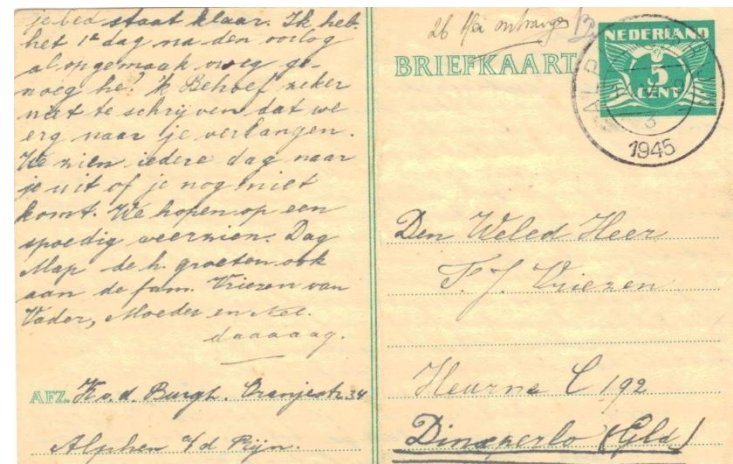 je bed staat klaar. Ik heb
het 1e dag na den oorlog
al opgemaakt vroeg ge-
noeg he? 'k Behoef zeker
niet te schrijven dat we
erg naar je verlangen.
We zien iedere dag naar
je uit of je nog niet
komt. We hopen op een
spoedig weerzien. Dag
Map de h. groeten ook
aan de fam. Vriezen van
Vader, Moeder en
daaaaag.
AFZ. K. v. d. Burgt. Oranjestr. 34
Alphen a/d Rijn.
26 Mei ontvangen
BRIEFKAART
NEDERLAND
5
CENT
ALP
3
1945
Den Weled Heer
F. J. Vriezen
Heurne C 192
Dinxperlo (Gld)